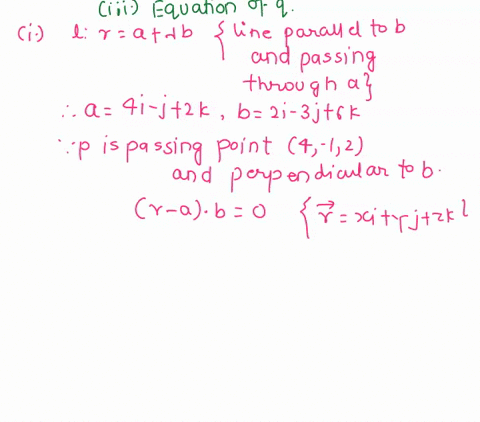 (iii) Equation of q.
(i.) l: r = a + λb { line parallel to b
and passing
through a}
∴ a = 4i-j+2k, b = 2i-3j+6k
∵ p is passing point (4,-1,2)
and perpendicular to b.
(r-a)·b = 0 { r⃗ = xi+yj+zk }